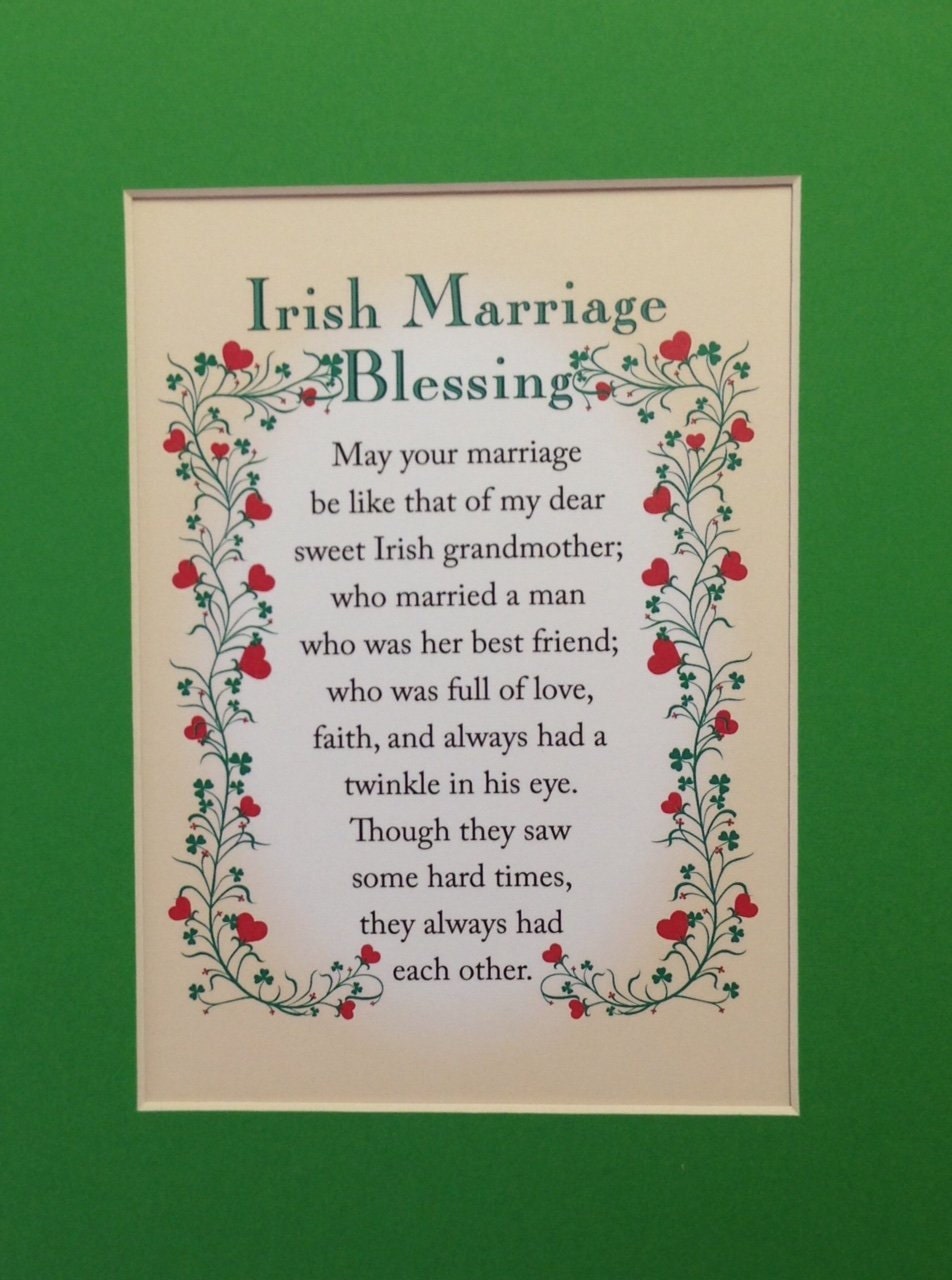 Irish Marriage
Blessing
May your marriage
be like that of my dear
sweet Irish grandmother;
who married a man
who was her best friend;
who was full of love,
faith, and always had a
twinkle in his eye.
Though they saw
some hard times,
they always had
each other.